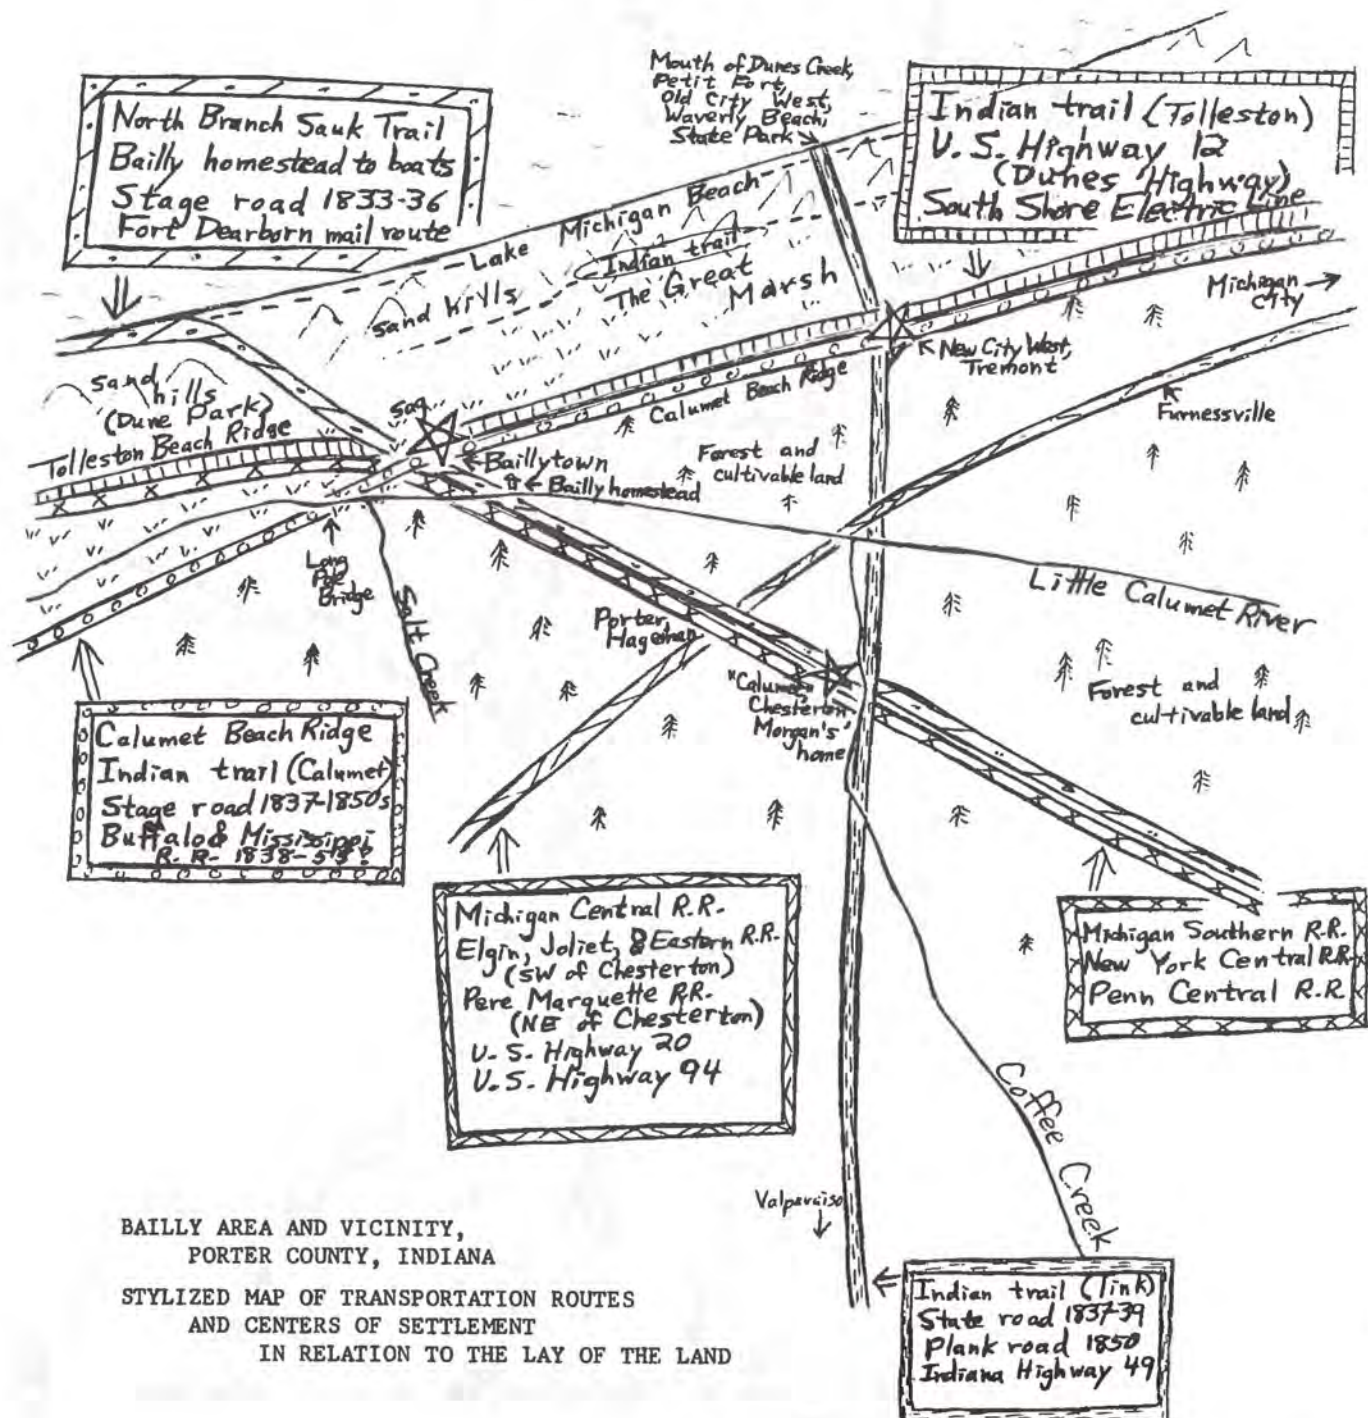 North Branch Sauk Trail
Bailly homestead to boats
Stage road 1833-36
Fort Dearborn mail route
Mouth of Dunes Creek,
Petit Fort,
Old City West,
Waverly Beach,
State Park
Indian trail (Tolleston)
U.S. Highway 12
(Dunes Highway)
South Shore Electric Line
Lake Michigan Beach
Indian trail
Sand hills
The Great Marsh
Michigan
City
New City West,
Tremont
Calumet Beach Ridge
Furnessville
Sand hills
(Dune Park)
Tolleston Beach Ridge
Sag
Baillytown
Bailly homestead
Forest and
cultivable land
Long
Pole
Bridge
Salt Creek
Little Calumet River
Porter,
Hageman
"Calumet,"
Chesterton
Morgan's
home
Forest and
cultivable land
Calumet Beach Ridge
Indian trail (Calumet)
Stage road 1837-1850's
Buffalo & Mississippi
R.R. 1838-
Michigan Central R.R.
Elgin, Joliet, & Eastern R.R.
(SW of Chesterton)
Pere Marquette R.R.
(NE of Chesterton)
U.S. Highway 20
U.S. Highway 94
Michigan Southern R.R.
New York Central R.R.
Penn Central R.R.
Coffee Creek
Valparaiso
Indian trail (Tink)
State road 1837-39
Plank road 1850
Indiana Highway 49
BAILLY AREA AND VICINITY,
PORTER COUNTY, INDIANA
STYLIZED MAP OF TRANSPORTATION ROUTES
AND CENTERS OF SETTLEMENT
IN RELATION TO THE LAY OF THE LAND